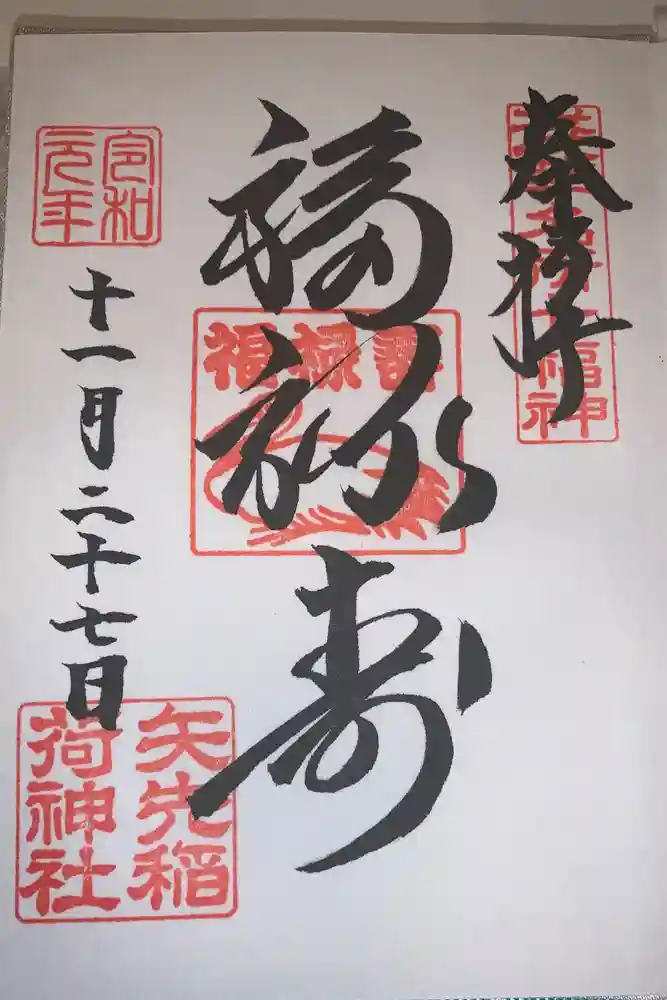 奉拝
浅草名所七福神
福禄寿
福禄壽
令和
元年
十一月二十七日
矢先稲
荷神社